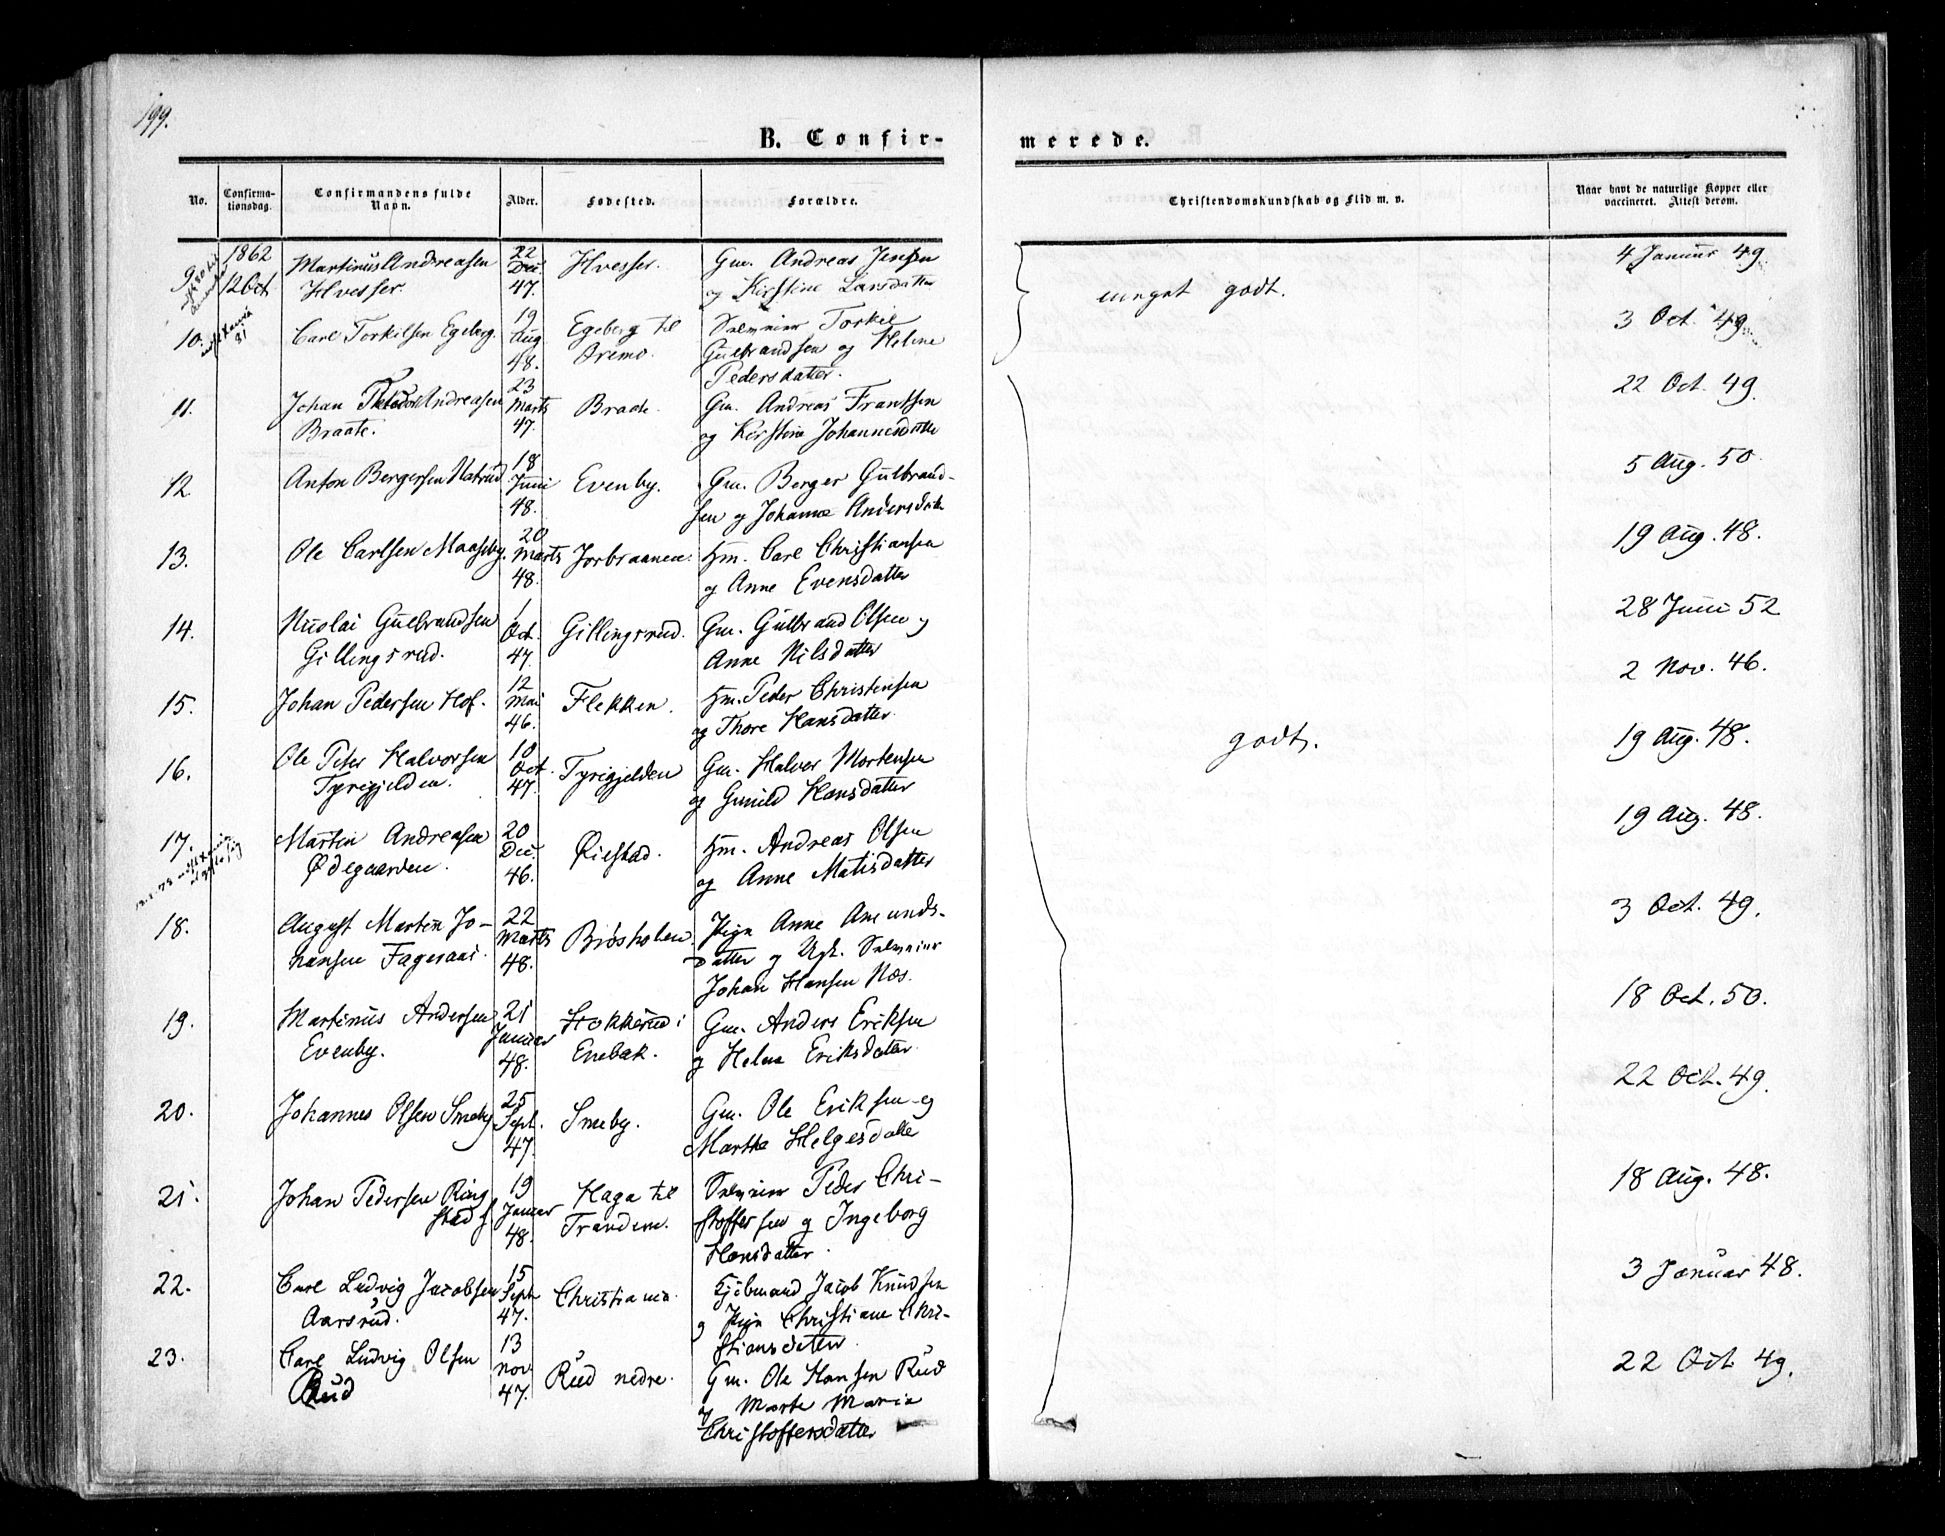 199.
B. Confirmerede.
No. Confirmationsdag. Confirmandens fulde Navn. Alder. Fødested. Forældre. Christendomskundskab og Flid m. v. Naar havt de naturlige Kopper eller vaccineret. Attest derom.
9 1862 12 Oct Martinus Andreasen Hvesser. 22 Dec. 47. Hvesser. Gm. Andreas Jensen og Kirstine Larsdatter meget godt. 4 Januar 49.
10. Carl Torkilsen Egeberg. 19 Aug 48. Egeberg til Oremo. Selveier Torkil Gulbrandsen og Helene Pedersdatter. 3 Oct. 49.
11. Johan Andreasen Braate. 23 Marts 47. Braate. Gm. Andreas Frantsen og Kirstine Johannesdatter 22 Oct. 49.
12. Anton Bergersen Natrud. 18 Juni 48. Evenby. Gm. Berger Gulbrandsen og Johanne Andersdatter 5 Aug. 50.
13. Ole Carlsen Maaseby. 20 Marts 48. Jorbraanen. Hm. Carl Christiansen og Anne Evensdatter 19 Aug. 48.
14. Nicolai Gulbrandsen Gillingsrud. 1 Oct. 47. Gillingsrud. Gm. Gulbrand Olsen og Anne Nilsdatter 28 Juni 52
15. Johan Pedersen Hof. 12 Mai 46. Flekken. Hm. Peder Christensen og Thore Hansdatter. 2 Nov. 46.
16. Ole Peter Halvorsen Tyrigjelden. 10 Oct. 47. Tyrigjelden Gm. Halvor Mortensen og Gunild Hansdatter godt. 19 Aug. 48.
17. Martin Andreasen Ødegaarden. 20 Dec. 46. Øiestad. Hm. Andreas Olsen og Anne Matisdatter 19 Aug. 48.
18. August Martin Johansen Fageraas. 22 Marts 48. Biøsholen. Pige Anne Amundsdatter og Ugk. Selveier Johan Hansen Næs. 3 Oct. 49.
19. Martinus Andersen Evenby. 21 Januar 48. Stokkerud i Enebak. Gm. Anders Eriksen og Helene Eriksdatter. 18 Oct. 50.
20. Johannes Olsen Smeby 25 Sept. 47. Smeby. Gm. Ole Eriksen og Marthe Helgesdatter 22 Oct. 49.
21. Johan Pedersen Ringstad 19 Januar 48. Haga til Trandem. Selveier Peder Christoffersen og Ingeborg Hansdatter. 18 Aug. 48.
22. Carl Ludvig Jacobsen Aarsrud. 15 Sept 47. Christiania. Kjøbmand Jacob Knudsen og Pige Christiane Christiansdatter. 3 Januar 48.
23. Carl Ludvig Olsen Rud 13 Nov 47. Rud nedre. Gm. Ole Hansen Rud og Marte Maria Christoffersdatter 22 Oct. 49.